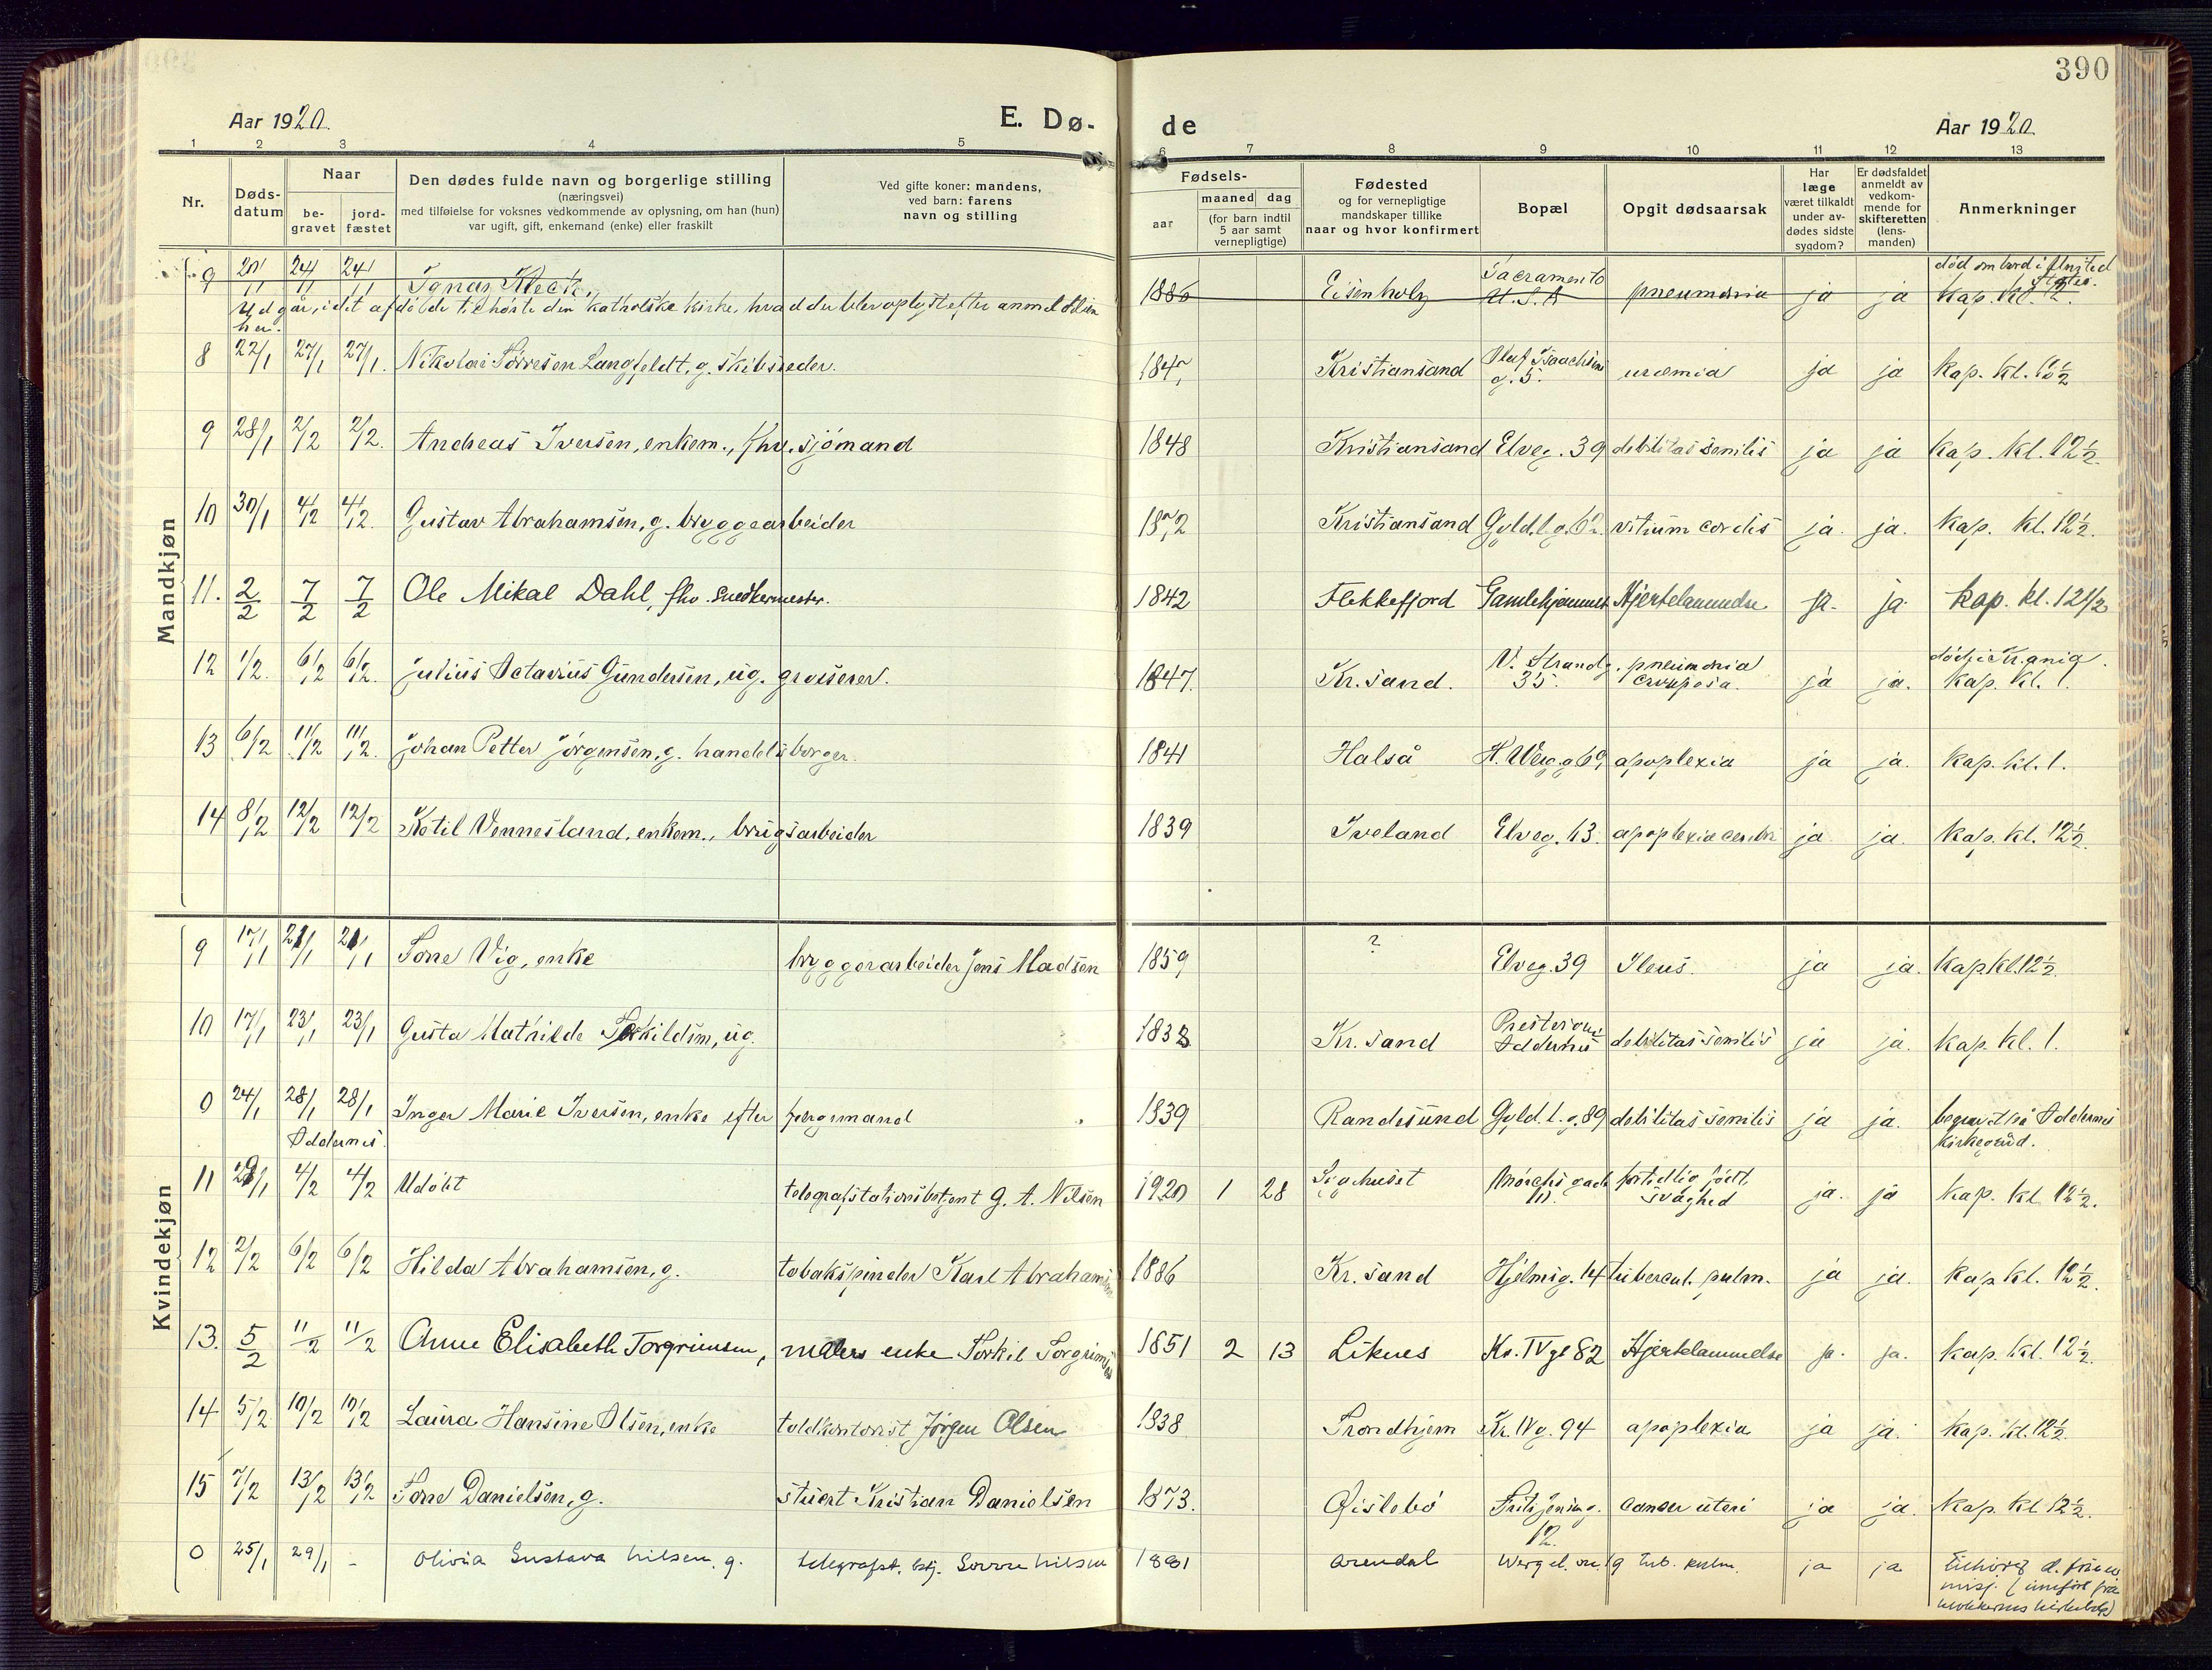 390
Aar 1920.
E. Dø-
de
Aar 1920.
1 2 3 4 5 6 7 8 9 10 11 12 13
Nr.
Døds-
datum
Naar
be-
gravet
jord-
fæstet
Den dødes fulde navn og borgerlige stilling
(næringsvei)
med tilføielse for voksnes vedkommende av oplysning, om han (hun)
var ugift, gift, enkemand (enke) eller fraskilt
Ved gifte koner: mandens,
ved barn: farens
navn og stilling
Fødsels-
aar
maaned dag
(for barn indtil
5 aar samt
vernepligtige)
Fødested
og for vernepligtige
mandskaper tillike
naar og hvor konfirmert
Bopæl
Opgit dødsaarsak
Har
læge
været tilkaldt
under av-
dødes sidste
sygdom?
Er dødsfaldet
anmeldt av
vedkom-
mende for
skifteretten
(lens-
manden)
Anmerkninger
Mandkjøn
9 20/1 24/1 24/1 Ignas Kleck, 1886 Eisenholz Sacramento U.S.A pneumonia ja ja død ombord i United States. kap. kl. 12.
Udgår, idet afdøde tilhørte den katholske kirke, hvad der blev oplyst efter anmeldelsen
her.
8 22/1 27/1 27/1. Nikolai Torresen Langfeldt, g. skibsreder. 184 Kristiansand Oluf Isaachsens g. 5. uræmia ja ja kap. kl. 10 1/2
9 28/1 2/2 2/2. Andreas Iversen, enkem., fhv. sjømand 1848 Kristiansand Elveg. 39 debilitas senilis ja ja kap. kl. 12 1/2.
10 30/1 4/2 4/2. Gustav Abrahamsen, g. bryggearbeider 1872 Kristiansand Gyld.l.g. 62. vitium cordis ja. ja. kap. kl. 12 1/2.
11. 2/2 7/2 7/2 Ole Mikal Dahl, fhv. snedkermester. 1842 Flekkefjord Gamlehjemmet Hjertelammelse ja. ja. kap. kl. 12 1/2
12 1/2. 6/2 6/2. Julius Octavius Gundersen, ug. grosserer. 1847. Kr.sand. V. Strandg. 35. pneumonia crupposa. ja ja. død i Kr.ania. kap. kl. 1.
13 6/2 11/2 11/2. Johan Petter Jørgensen, g. handelsborger. 1841 Halså H. Werg.g 69 apoplexia ja ja. kap. kl. 1.
14 8/2 12/2 12/2 Ketil Vennesland, enkem., brugsarbeider 1839 Iveland Elveg. 63. apoplexia cerebri ja ja. kap. kl. 12 1/2.
Kvindekjøn
9 17/1 21/1 21/1 Tone Vig, enke bryggerarbeider Jens Madsen 1859 ? Elveg. 39 Ileus. ja ja. kap kl. 12 1/2.
10 17/1 23/1 23/1 Gusta Mathilde Torkildsen, ug. 1838 Kr.sand Prestvigen Oddernes debilitas senilis ja ja. kap. kl. 1.
0 24/1 28/1 28/1 Oddernes. Inger Marie Iversen, enke efter færgemand 1839 Randesund Gyld. l. g. 89 debilitas senilis ja ja. begravet på Oddernes kirkegård.
11 29/1 4/2 4/2 Udøbt telegrafstationsbetjent G. A. Nilsen 1920 1 28 Sygehuset Mørchs gade 10. fortidlig født, svaghed ja. ja kap. kl. 12 1/2.
12 2/2 6/2 6/2 Hilda Abrahamsen, g. tobakspinder Karl Abrahamsen 1886 Kr.sand Hjelmsg. 14 tubercul. pulm. ja ja. kap kl. 12 1/2.
13. 5/2 11/2 11/2 Anne Elisabeth Torgrimsen, malers enke Torkil Torgrimsen 1851 2 13 Liknes Kr. IV g 82 Hjertelammelse ja. ja. kap. kl. 12 1/2.
14 5/2 10/2 10/2 Laura Hansine Olsen, enke toldkontorist Jørgen Olsen 1838 Trondhjem Kr. IV g. 94 apoplexia ja ja. kap. kl. 12 1/2.
15 7/2 13/2 13/2 Tone Danielsen, g. stuert Kristian Danielsen 1873. Øislebø Fritz Jensg. 12. cancer uteri ja ja. kap. kl 12 1/2.
0 25/1 29/1 - Olivia Gustava Nilsen, g. telegrafst. btj. Nilsen 1881 Arendal Wergel. tub. pulm. ja ja Tilhørt d. frie misj. (innført fra klokkerens kirkebok)